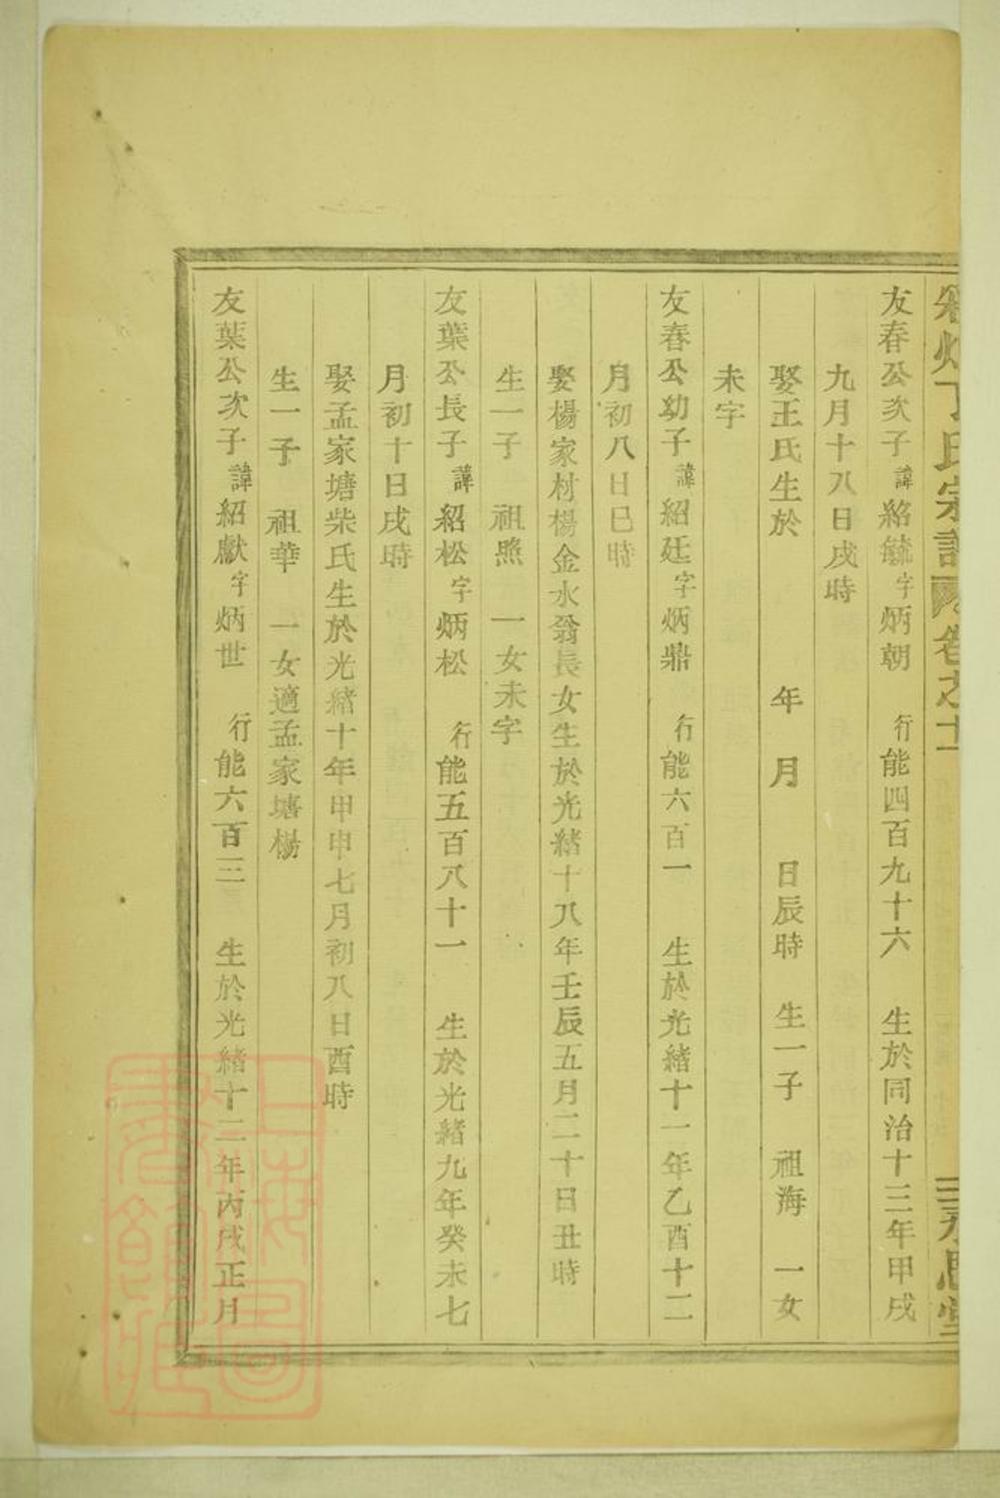 丁氏宗譜 卷之十一 三 永思堂
友春公次子諱紹毓字炳朝 行能四百九十六 生於同治十三年甲戌
九月十八日戌時
娶王氏生於 年 月 日辰時 生一子 祖海 一女
未字
友春公幼子諱紹廷字炳鼎 行能六百一 生於光緒十一年乙酉十二
月初八日巳時
娶楊家村楊金水翁長女生於光緒十八年壬辰五月二十日丑時
生一子 祖煦 一女未字
友葉公長子諱紹松字炳松 行能五百八十一 生於光緒九年癸未七
月初十日戌時
娶孟家塘柴氏生於光緒十年甲申七月初八日酉時
生一子 祖華 一女適孟家塘楊
友葉公次子諱紹獻字炳世 行能六百三 生於光緒十二年丙戌正月
上海圖書館藏